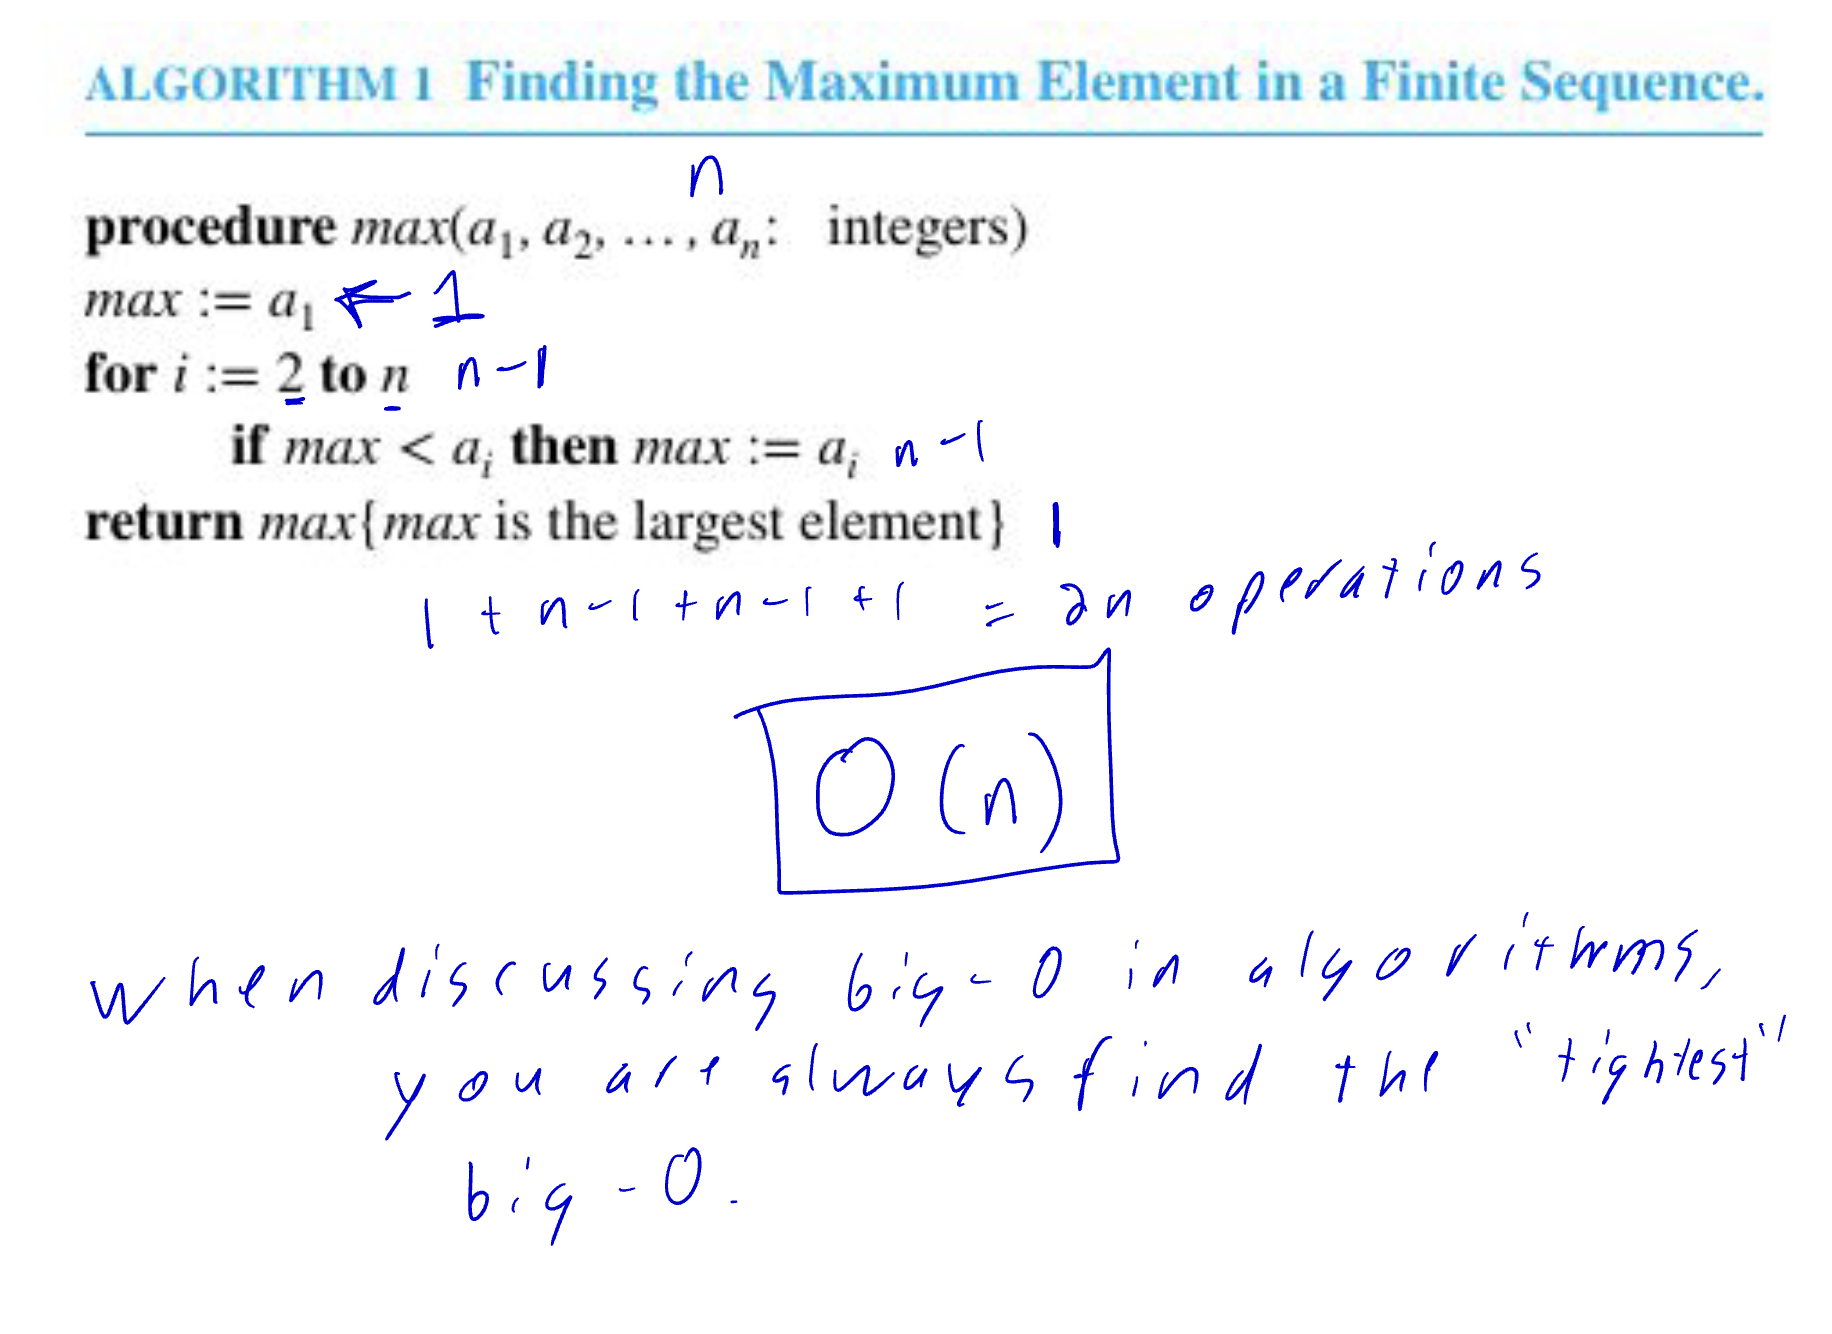 ALGORITHM 1 Finding the Maximum Element in a Finite Sequence.
n
procedure max(a₁, a₂, …, aₙ: integers)
max := a₁ ← 1
for i := 2 to n n-1
if max < aᵢ then max := aᵢ n-1
return max{max is the largest element} 1
1 + n-1 + n-1 + 1 = 2n operations
O(n)
when discussing big-O in algorithms,
you are always find the "tightest"
big-O.